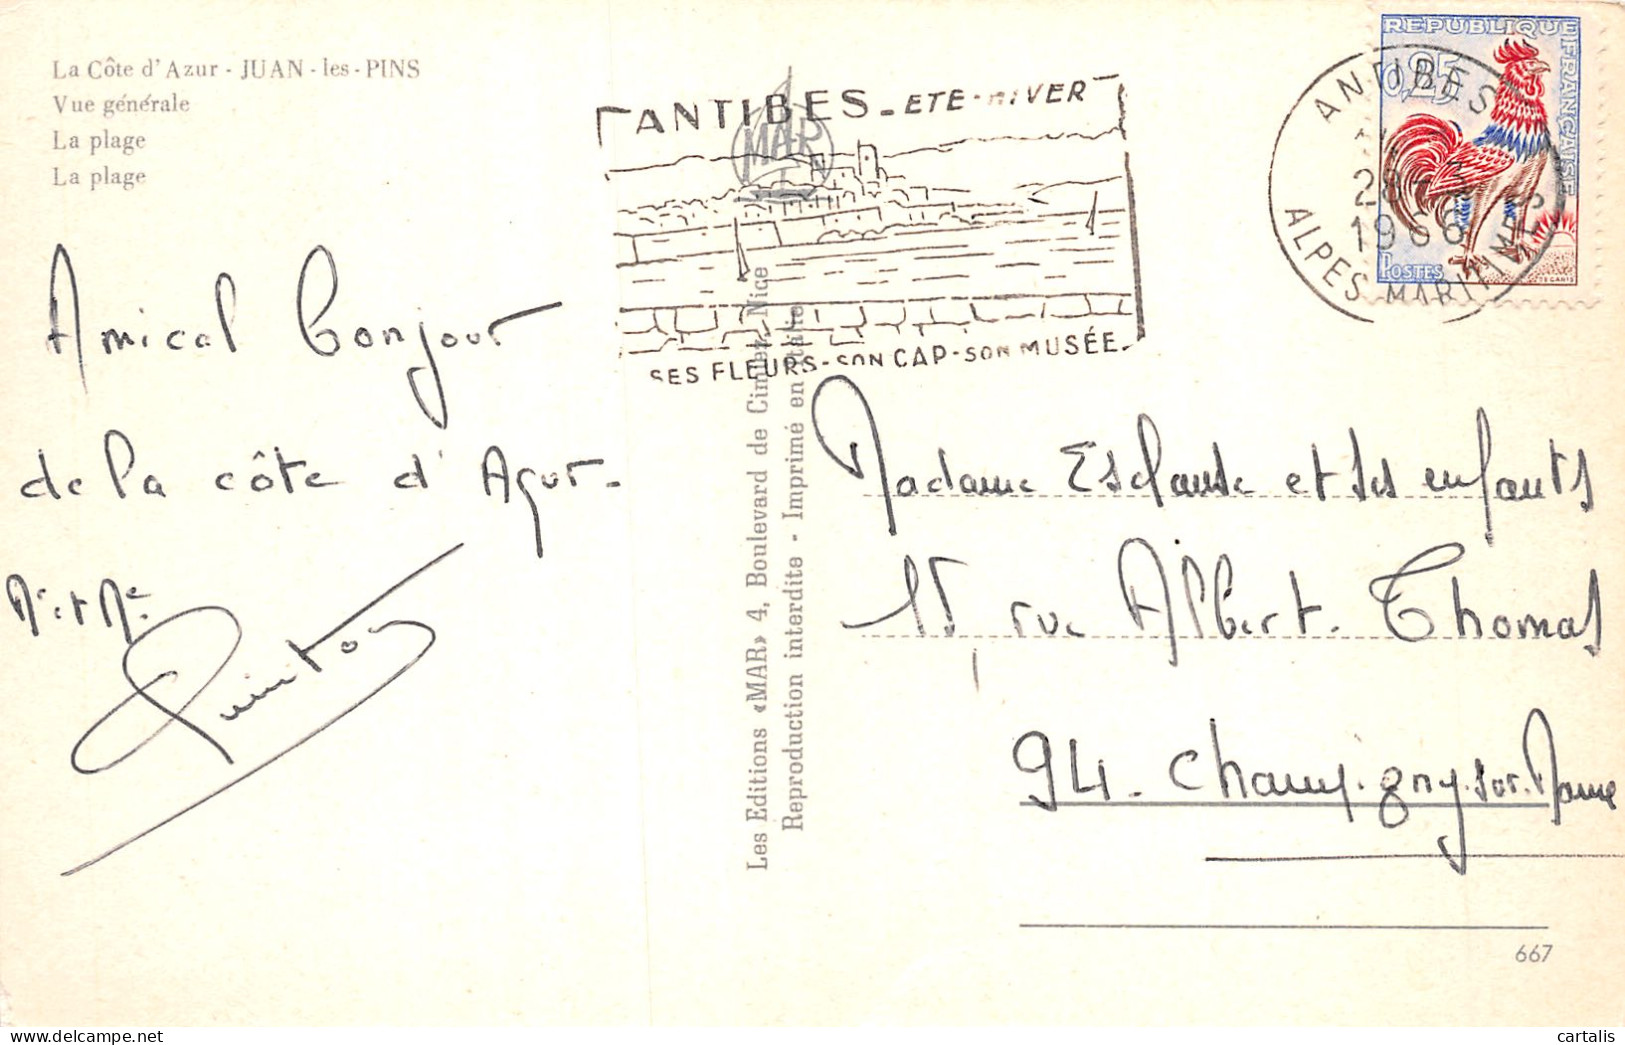 La Côte d'Azur - JUAN - les - PINS
Vue générale
La plage
La plage
ANTIBES - ETE - HIVER
MAR
SES FLEURS - SON CAP - SON MUSÉE
REPUBLIQUE FRANÇAISE
0,25
POSTES
ANTIBES
28
1966
ALPES MARITIMES
Amical bonjour
de la côte d'Azur -
Mr et Me
Les Editions «MAR» 4, Boulevard de Cimiez, Nice
Reproduction interdite - Imprimé en Italie
Madame Esclause et ses enfants
15 rue Albert. Thomas
94 - Champigny. sur. Marne
667
cartalis